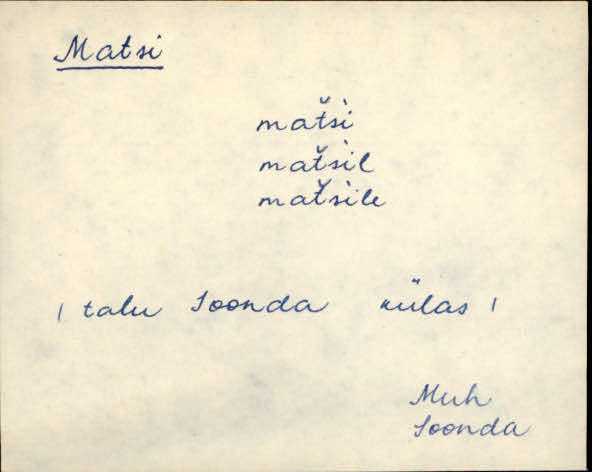 Matsi
mat̆s̀i
mat̆s̀il
mat̆s̀ile
/ talu Soonda külas /
Muh
Soonda